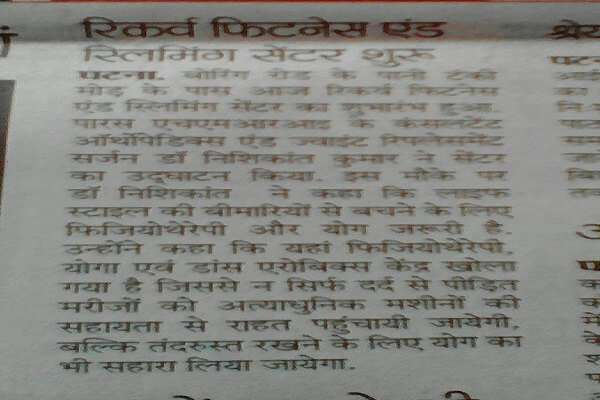 रिकर्व फिटनेस एंड
स्लिमिंग सेंटर शुरू
पटना. बोरिंग रोड के पानी टंकी
मोड़ के पास आज रिकर्व फिटनेस
एंड स्लिमिंग सेंटर का शुभारंभ हुआ.
पारस एचएमआरआइ के कंसल्टेंट
ऑर्थोपेडिक्स एंड ज्वाइंट रिप्लेसमेंट
सर्जन डॉ निशिकांत कुमार ने सेंटर
का उद्घाटन किया. इस मौके पर
डॉ निशिकांत ने कहा कि लाइफ
स्टाइल की बीमारियों से बचने के लिए
फिजियोथेरेपी और योग जरूरी है.
उन्होंने कहा कि यहां फिजियोथेरेपी,
योगा एवं डांस एरोबिक्स केंद्र खोला
गया है जिससे न सिर्फ दर्द से पीड़ित
मरीजों को अत्याधुनिक मशीनों की
सहायता से राहत पहुंचायी जायेगी,
बल्कि तंदरुस्त रखने के लिए योग का
भी सहारा लिया जायेगा.